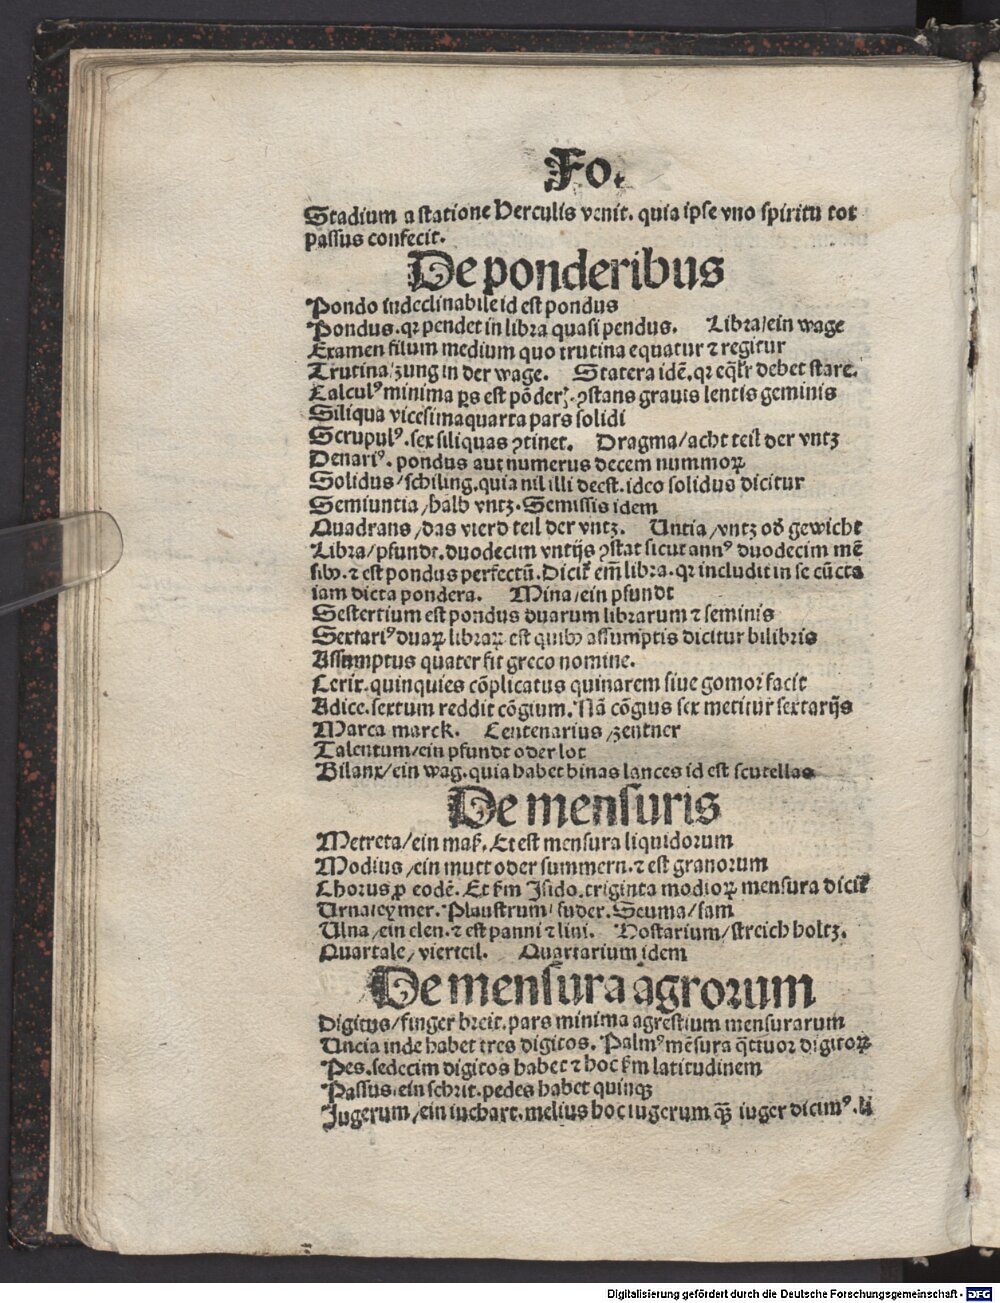 Fo.
Stadium a statione Herculis venit. quia ipse vno spiritu tot
passus confecit.
De ponderibus
Pondo indeclinabile id est pondus
Pondus. qꝛ pendet in libra quasi pendus. Libra/ein wage
Examen filum medium quo trutina equatur ⁊ regitur
Trutina/zung in der wage. Statera idē. qꝛ eq̄lr̄ debet stare.
Calculꝰ minima ꝑs est pōderꝭ. ꝯstans grauis lentis geminis
Siliqua vicesimaquarta pars solidi
Scrupulꝰ. sex siliquas ꝯtinet. Dragma/acht teil der vntz
Denariꝰ. pondus aut numerus decem nummoꝝ
Solidus/schiling. quia nil illi deest. ideo solidus dicitur
Semiuntia/halb vntz. Semissis idem
Quadrans/das vierd teil der vntz. Untia/vntz od̄ gewicht
Libra/pfundt. duodecim vntijs ꝯstat sicut annꝰ duodecim mē
sibꝫ. ⁊ est pondus perfectū. Dicit̄ em̄ libra. qꝛ includit in se cūcta
iam dicta pondera. Mina/ein pfundt
Sestertium est pondus duarum librarum ⁊ seminis
Sextariꝰ duaꝝ libraꝝ est quibꝫ assumptis dicitur bilibris
Assumptus quater fit greco nomine.
Cerix. quinquies cōplicatus quinarem siue gomor facit
Adice. sextum reddit cōgium. Nā cōgius sex metitur sextarijs
Marca marck. Centenarius/zentner
Talentum/ein pfundt oder lot
Bilanx/ein wag. quia habet binas lances id est scutellas
De mensuris
Metreta/ein maß. Et est mensura liquidorum
Modius/ein mutt oder summern. ⁊ est granorum
Chorus ꝓ eodē. Et ẜm Isido. triginta modioꝝ mensura dicit̄
Urna/eymer. Plaustrum/fuder. Seuma/sam
Ulna/ein elen. ⁊ est panni ⁊ lini. Hostarium/streich holtz.
Quartale/vierteil. Quartarium idem
De mensura agrorum
Digitus/finger breit. pars minima agrestium mensurarum
Uncia inde habet tres digitos. Palmꝰ mēsura q̄ttuor digitoꝝ
Pes. sedecim digitos habet ⁊ hoc ẜm latitudinem
Passus/ein schrit. pedes habet quinqꝫ
Jugerum/ein iuchart. melius hoc iugerum qꝫ̄ iuger dicimꝰ. li
Digitalisierung gefördert durch die Deutsche Forschungsgemeinschaft - DFG